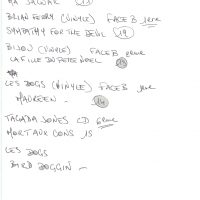 MA JAGUAR (13)
BRIAN FERRY (VINYLE) FACE B 1ere
SYMPATHY FOR THE DEVIL (19)
BIJOU (VINYLE) FACE B 2eme
LA FILLE DU PERE NOEL
LES DOGS (VINYLE) FACE B 1ere
MAUREEN - (14)
TAGADA JONES CD 6eme
MORT AUX CONS 15
LES DOGS
BIRD DOGGIN -